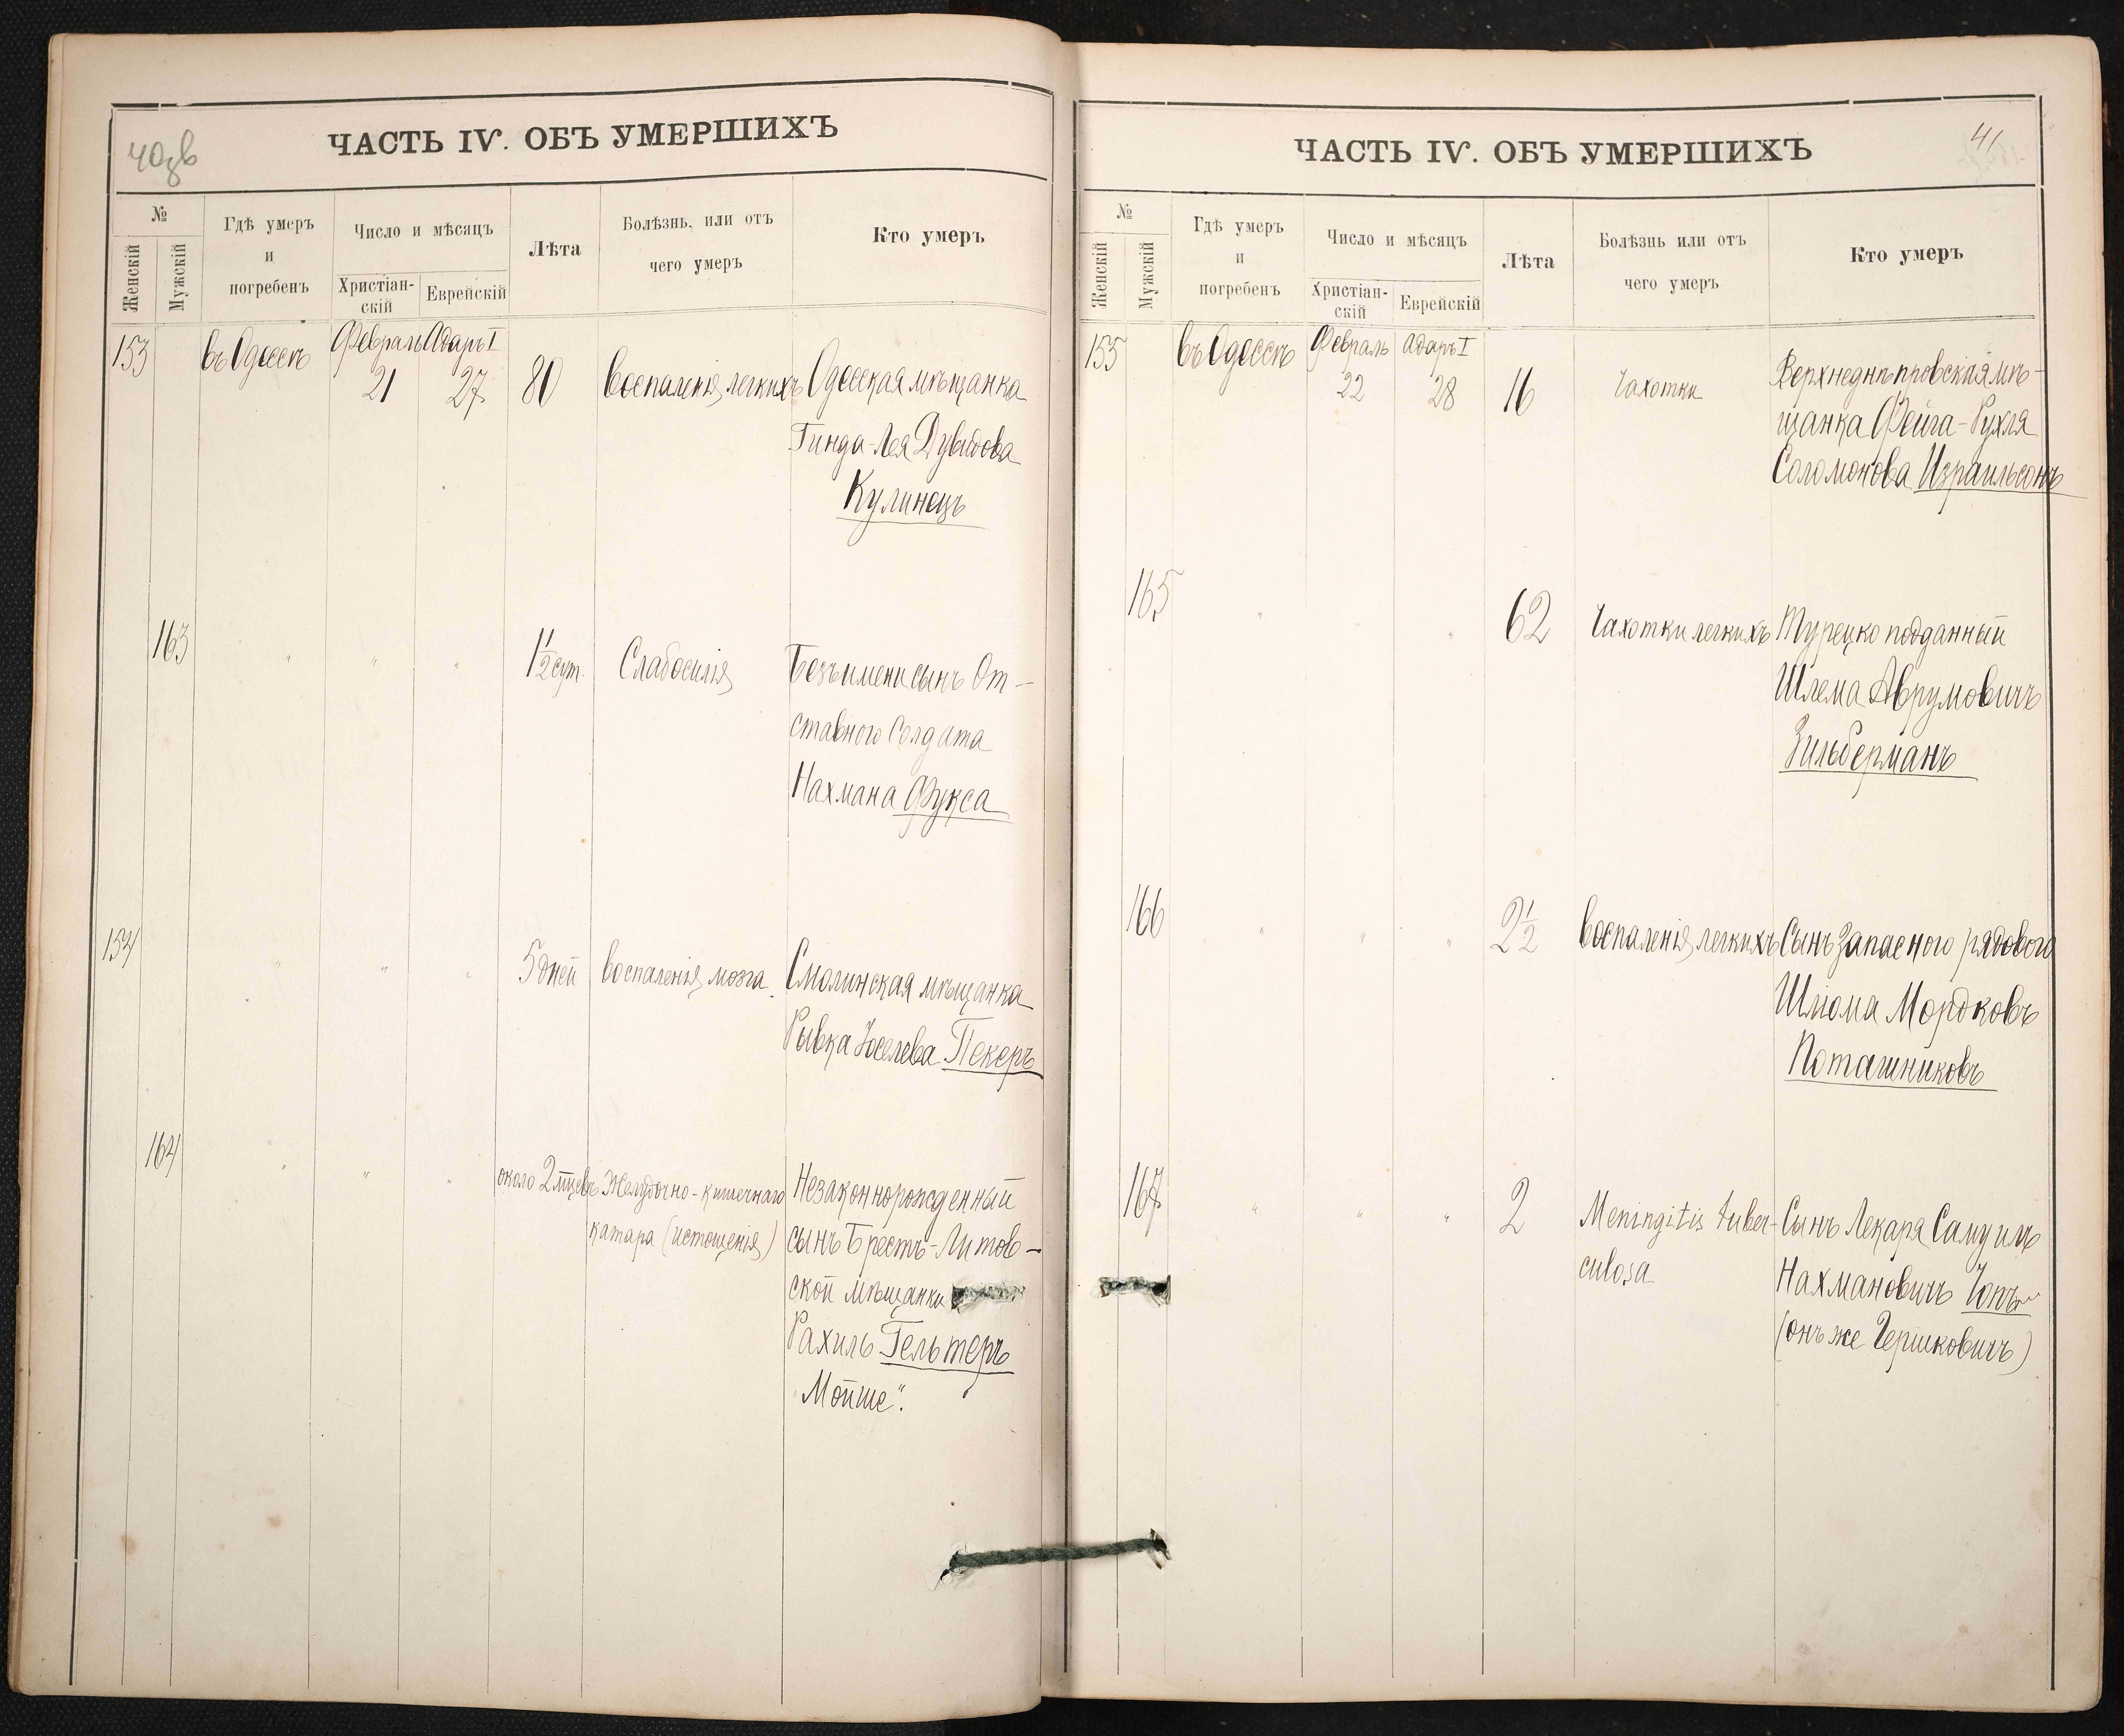 40зв
ЧАСТЬ IV. ОБЪ УМЕРШИХЪ
№
Женскій
Мужскій
Гдѣ умеръ
и
погребенъ
Число и мѣсяцъ
Христіан-
скій
Еврейскій
Лѣта
Болѣзнь, или отъ
чего умеръ
Кто умеръ
153 въ Одессѣ Февраль Адаръ I
21 27 80 воспаленія легкихъ Одесская мѣщанка
Гинда-Лея Дувидова
Кулинецъ
163 " " " 1 1/2 сут. Слабосилія Безъ имени сынъ От-
ставного Солдата
Нахмана Фукса
154 " " " 5 дней воспаленія мозга. Смолинская мѣщанка
Рывка Іоселева Пекеръ
164 " " " около 2 мѣцевъ Желудочно-кишечнаго Незаконнорожденный
катара (истощенія) сынъ Брестъ-Литов-
ской мѣщанки
Рахиль Гельтеръ
"Мойше".
41
ЧАСТЬ IV. ОБЪ УМЕРШИХЪ
№
Женскій
Мужскій
Гдѣ умеръ
и
погребенъ
Число и мѣсяцъ
Христіан-
скій
Еврейскій
Лѣта
Болѣзнь или отъ
чего умеръ
Кто умеръ
155 въ Одессѣ Февраль Адаръ I
22 28 16 Чахотки Верхнеднѣпровская мѣ-
щанка Фейга-Рухля
Соломонова Израильсонъ
165 " " " 62 Чахотки легкихъ Турецко подданный
Шлема Аврумовичъ
Зильберманъ
166 " " " 2 1/2 воспаленія легкихъ Сынъ запасного рядового
Шлома Мордковъ
Поташниковъ
167 " " " 2 Meningitis tuber- Сынъ Лекаря Самуилъ
culosa Нахмановичъ
(онъ же Гершковичъ)